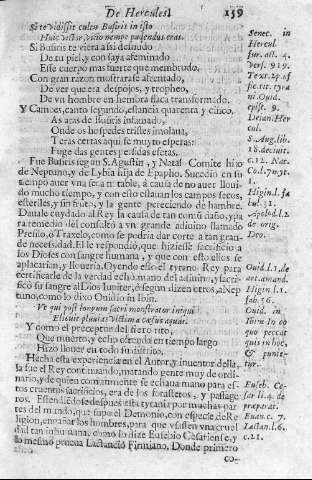 De Hercules.
159
Si te vidisset cultu Busiris in isto
Huic victor, victo nempe pudendus eras.
Si Busiris te viera assi desnudo
De tu piel, y con saya afeminado
Esse cuerpo mas fuerte que membrudo,
Con gran razon mostrarase afrentado,
De ver que era despojos, y tropheo,
De vn hombre en hembra flaca transformado.
Y Camoes, canto segundo, estancia quarenta y cinco.
As aras de Busiris infamado,
Onde os hospedes tristes imolaua,
Teras certas aqui se muyto esperas:
Fuge das gentes perfidas e feras.
Fue Busiris segun S. Agustin, y Natal Comite hijo
de Neptuno, y de Lybia hija de Epapho. Sucedio en su
tiempo auer vna seca notable, à causa de no auer lloui-
do mucho tiempo, y con esto estauan los campos secos,
esteriles, y sin fruto, y la gente pereciendo de hambre.
Dauale cuydado al Rey la causa de tanto daño, y pa
ra remedio del consultò a vn grande adiuino llamado
como se podria dar corte a tan gran-
de necessidad. El le respondiò, que hiziesse sacrificio a
los Dioses con sangre humana, y que con esto ellos se
aplacarian, y llouria. Oyendo esto el tyrano Rey para
certificarse de la verdad echò mano del adiuino, y sacri-
ficò su sangre al Dios Iupiter, ò segun dizen otros, a Nep
tuno, como lo dixo Ouidio in Ibin.
Vt qui post longum sacri monstrator iniqui
Elicuit pluuias victima caesus aquas.
Y como el preceptor del fiero rito,
Que muerto, y echo ofrenda en tiempo largo
Hizo llouer en todo su distrito.
Hecha esta experiencia en el Autor, y inuentor della,
la fue el Rey continuando, matando gente muy de or-
dinario, y de quien comunmente se echaua mano para es-
tos cruentos sacrificios, era de los forasteros, y passage-
ros. Estendiose despues esta tyrania por muchas par-
tes del mundo, que supo el Demonio, con especie de Re
ligion, engañar los hombres, para que vsassen vna cruel
dad tan inhumana, como lo dize Eusebio Cesariense, y
lo mesmo prueua Lactancio Firmiano. Donde primero
co-
Senec. in
Hercul.
fur. act. 4.
vers. 919.
Text. 2. of
fic. tit. tyra
ni. Ouid.
epist. 9.
Deian. Her
cul.
S. Aug. lib.
18. de ciuit.
c. 12. Nat.
Co. l. 7.
1.
Higin. l. fa
bul. 31.
Apolod. l. 2
de orig.
Deo.
Ouid. l. 1. de
art. amand.
Higin. l. 1.
fab. 56.
Ouid. in
Ibin.
quo peccat
quis in hoc,
& punie-
tur.
Euseb. Ce-
sar li. 4. de
praeparat.
Euan. c. 7.
Lactan. l. 6.
c. 21.